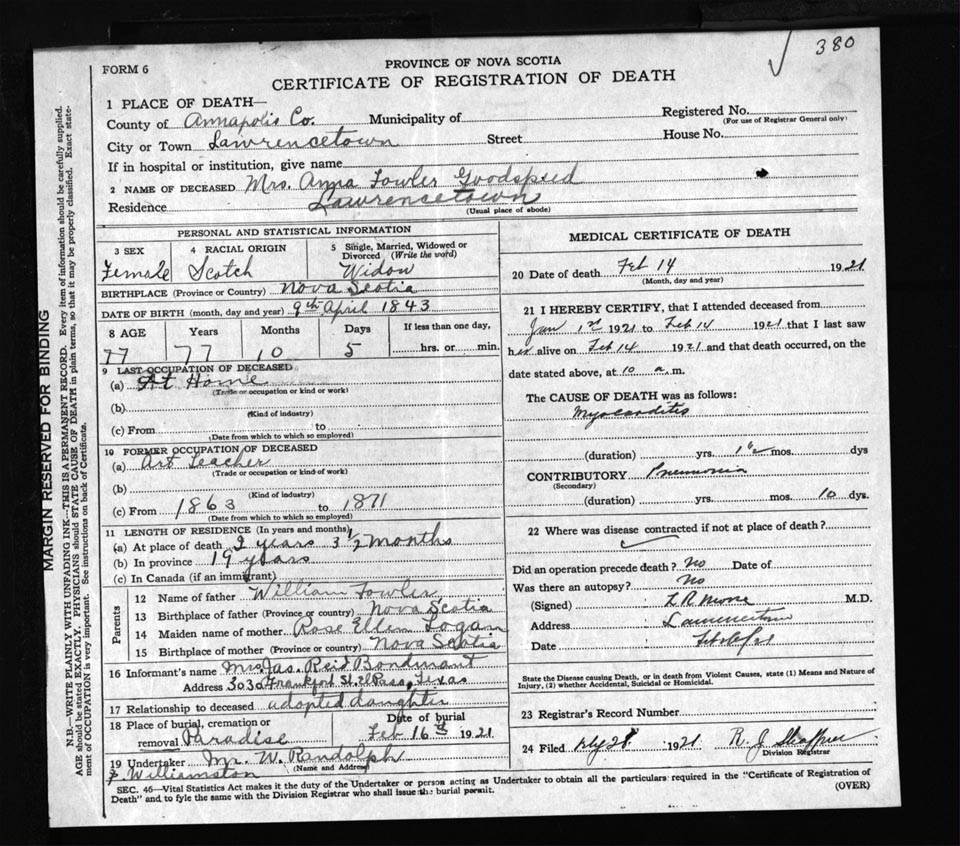 380
FORM 6
PROVINCE OF NOVA SCOTIA
CERTIFICATE OF REGISTRATION OF DEATH
1 PLACE OF DEATH—
County of Annapolis Co. Municipality of Registered No.
(For use of Registrar General only)
City or Town Lawrencetown Street House No.
If in hospital or institution, give name
2 NAME OF DECEASED Mrs. Anna Fowler Goodspeed
Residence Lawrencetown
(Usual place of abode)
PERSONAL AND STATISTICAL INFORMATION
3 SEX 4 RACIAL ORIGIN 5 Single, Married, Widowed or Divorced (Write the word)
Female Scotch Widow
BIRTHPLACE (Province or Country) Nova Scotia
DATE OF BIRTH (month, day and year) 9th April 1843
8 AGE Years Months Days If less than one day,
77 77 10 5 hrs. or min.
9 LAST OCCUPATION OF DECEASED
(a) At Home
(Trade or occupation or kind or work)
(b)
(Kind of industry)
(c) From to
(Date from which to which so employed)
10 FORMER OCCUPATION OF DECEASED
(a) Art Teacher
(Trade or occupation or kind or work)
(b)
(Kind of industry)
(c) From 1863 to 1871
(Date from which to which so employed)
11 LENGTH OF RESIDENCE (In years and months)
(a) At place of death 2 years 3½ months
(b) In province 19 years
(c) In Canada (if an immigrant)
Parents
12 Name of father William Fowler
13 Birthplace of father (Province or country) Nova Scotia
14 Maiden name of mother Rose Ellen Logan
15 Birthplace of mother (Province or country) Nova Scotia
16 Informant's name Mrs Jas. Reid
Address 3030 Frankfort St. El Paso, Texas
17 Relationship to deceased adopted daughter
18 Place of burial, cremation or Date of burial
removal Paradise Feb 16th 1921
19 Undertaker Mr. W. Randolph
(Name and Address)
Williamston
MEDICAL CERTIFICATE OF DEATH
20 Date of death Feb 14 1921
(Month, day and year)
21 I HEREBY CERTIFY, that I attended deceased from
Jan 1921 to Feb 14 1921 that I last saw
her alive on Feb 14 1921 and that death occurred, on the
date stated above, at 10 a.m.
The CAUSE OF DEATH was as follows:
Myocarditis
(duration) yrs. 1½ mos. dys
CONTRIBUTORY Pneumonia
(Secondary)
(duration) yrs. mos. 10 dys.
22 Where was disease contracted if not at place of death?
Did an operation precede death? no Date of
Was there an autopsy? No
(Signed) L R Morse M.D.
Address Lawrencetown
Date
State the Disease causing Death, or in death from Violent Causes, state (1) Means and Nature of
Injury, (2) whether Accidental, Suicidal or Homicidal.
23 Registrar's Record Number
24 Filed 1921 R. J. Shaffner
Division Registrar
SEC. 46—Vital Statistics Act makes it the duty of the Undertaker or person acting as Undertaker to obtain all the particulars required in the "Certificate of Registration of
Death" and to fyle the same with the Division Registrar who shall issue the burial permit. (OVER)
MARGIN RESERVED FOR BINDING
N.B.—WRITE PLAINLY WITH UNFADING INK—THIS IS A PERMANENT RECORD. Every item of information should be carefully supplied.
AGE should be stated EXACTLY. PHYSICIANS should STATE CAUSE OF DEATH in plain terms, so that it may be properly classified. Exact state-
ment of OCCUPATION is very important. See instructions on back of Certificate.